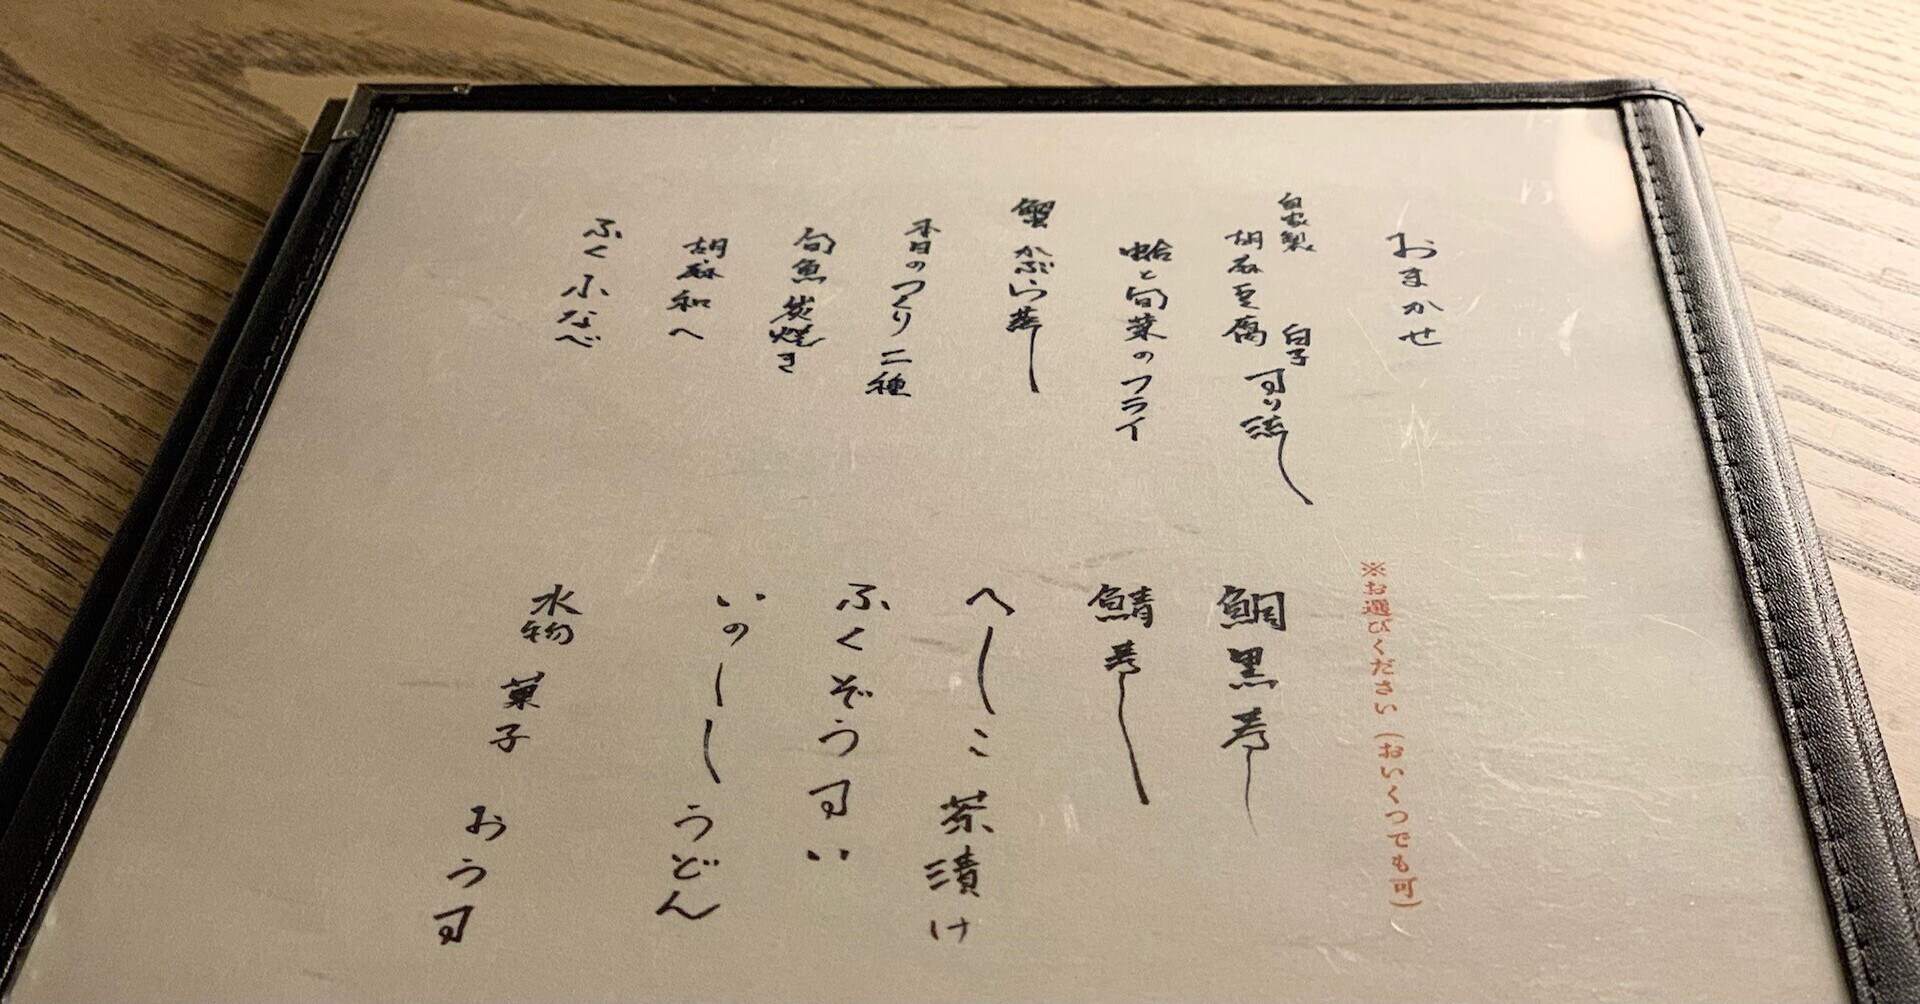 おまかせ
自家製
胡麻豆腐 白子 すり流し
蛤と旬菜のフライ
蟹 かぶら蒸し
本日のつくり 二種
旬魚炭焼き
胡麻和へ
ふく 小なべ
※お選びください（おいくつでも可）
鯛黒寿し
鯖寿し
へしこ茶漬け
ふくぞうすい
いのししうどん
水物 菓子 おうす